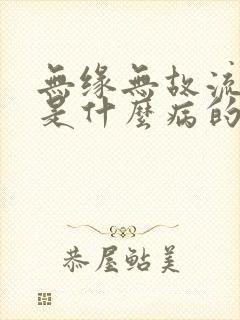 無缘無故流
是什麼病的
恭屋鲇美